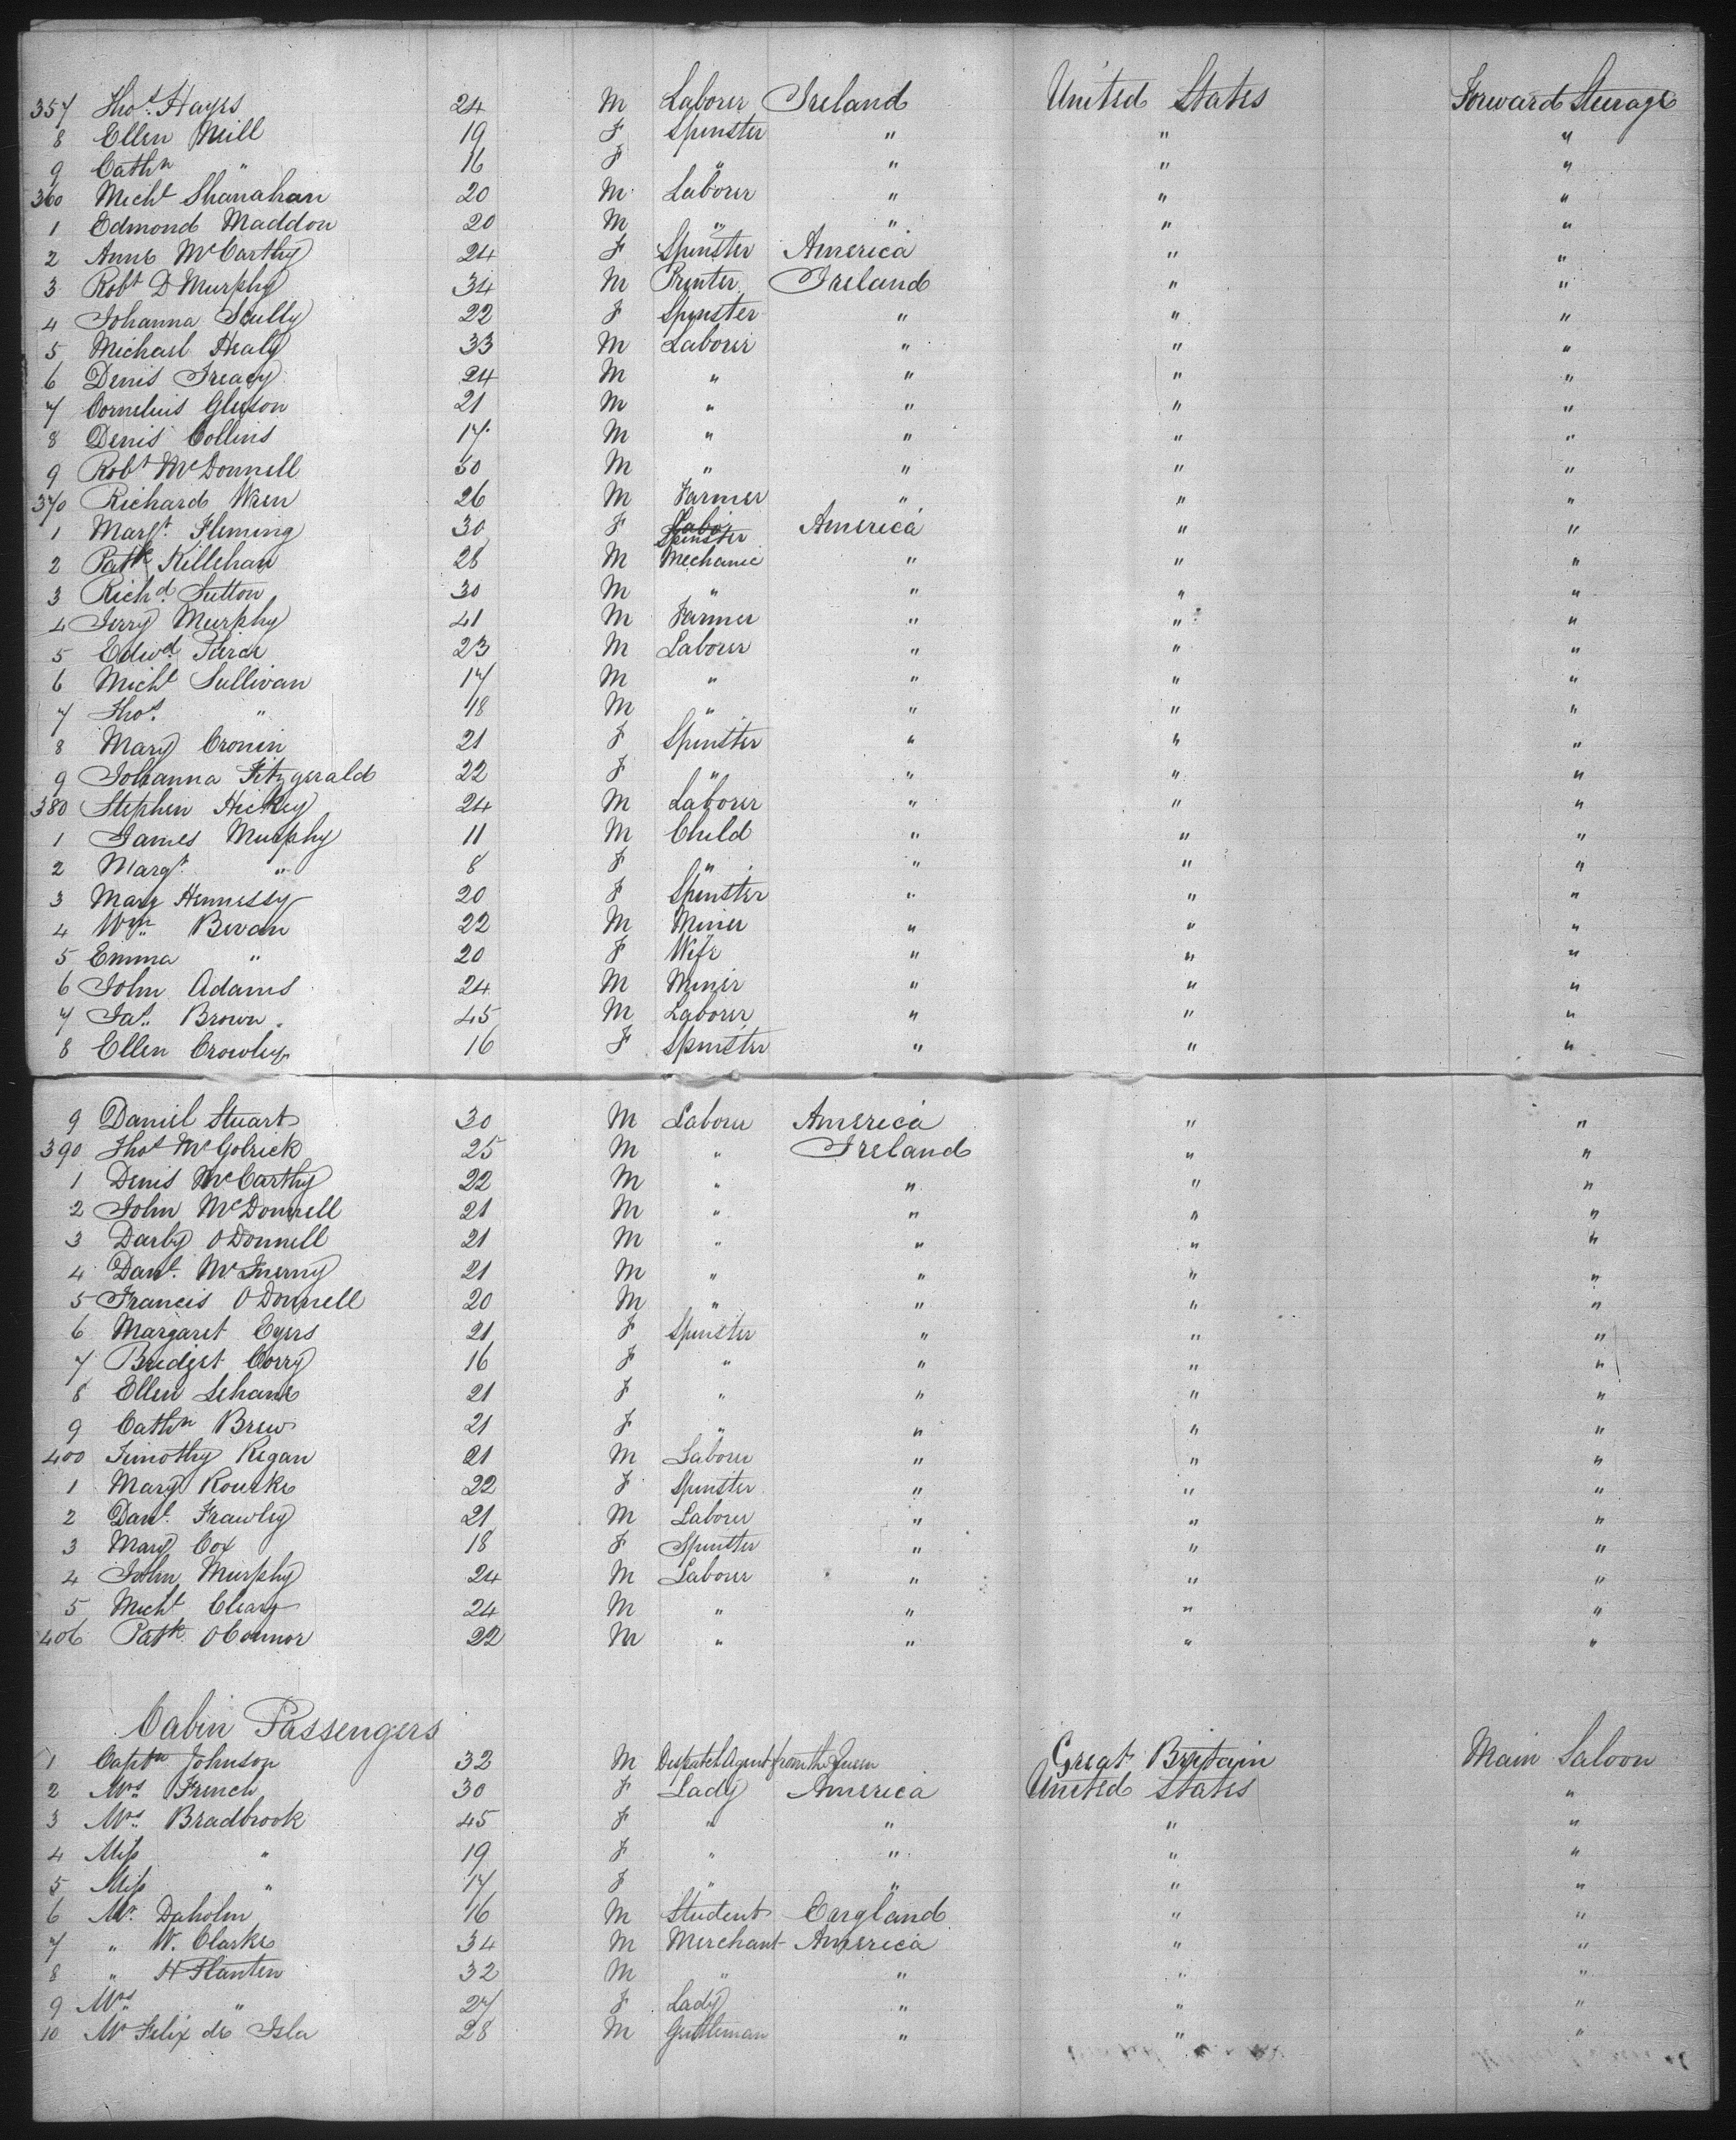 357 Thos. Hayes 24 M Laborer Ireland United States Forward Steerage
8 Ellen Neill 19 F Spinster " " "
9 Cathn " 16 F " " " "
360 Michl Shanahan 20 M Laborer " " "
1 Edmond Maddon 20 M " " " "
2 Anne McCarthy 24 F Spinster America " "
3 Robt D Murphy 34 M Printer Ireland " "
4 Johanna Scully 22 F Spinster " " "
5 Michael Healy 33 M Laborer " " "
6 Denis Treacy 24 M " " " "
7 Cornelius Gleeson 21 M " " " "
8 Denis Collins 17 M " " " "
9 Robt McDonnell 30 M " " " "
370 Richard Wren 26 M Farmer " " "
1 Margt. Fleming 30 F Spinster America " "
2 Patk Killehan 28 M Mechanic " " "
3 Richd. Sutton 30 M " " " "
4 Jerry Murphy 41 M Farmer " " "
5 Edwd. Pierce 23 M Laborer " " "
6 Michl Sullivan 17 M " " " "
7 Thos. " 18 M " " " "
8 Mary Cronin 21 F Spinster " " "
9 Johanna Fitzgerald 22 F " " " "
380 Stephen Hickey 24 M Laborer " " "
1 James Murphy 11 M Child " " "
2 Margt. " 8 F " " " "
3 Mary Hennessy 20 F Spinster " " "
4 Wm. Bevan 22 M Miner " " "
5 Emma " 20 F Wife " " "
6 John Adams 24 M Miner " " "
7 Jas. Brown 45 M Laborer " " "
8 Ellen Crowley 16 F Spinster " " "
9 Daniel Stuart 30 M Laborer America " "
390 Thos McGolrick 25 M " Ireland " "
1 Denis McCarthy 22 M " " " "
2 John McDonnell 21 M " " " "
3 Darby O Donnell 21 M " " " "
4 Danl. McInerny 21 M " " " "
5 Francis O Donnell 20 M " " " "
6 Margaret Eyers 21 F Spinster " " "
7 Bridget Corry 16 F " " " "
8 Ellen Lehane 21 F " " " "
9 Cathn Brew 21 F " " " "
400 Timothy Regan 21 M Laborer " " "
1 Mary Rourke 22 F Spinster " " "
2 Danl. Frawley 21 M Laborer " " "
3 Mary Cox 18 F Spinster " " "
4 John Murphy 24 M Laborer " " "
5 Michl Cleary 24 M " " " "
406 Patk. O Connor 22 M " " " "
Cabin Passengers
1 Captn Johnson 32 M Despatch Agent from the Queen Great Britain Main Saloon
2 Mrs. French 30 F Lady America United States "
3 Mrs. Bradbrook 45 F " " " "
4 Miss " 19 F " " " "
5 Miss " 17 F " " " "
6 Mr. Daholm 16 M Student England " "
7 " W. Clarke 34 M Merchant America " "
8 " H Planten 32 M " " " "
9 Mrs. " 27 F Lady " " "
10 Mr Felix de Isla 28 M Gentleman " " "